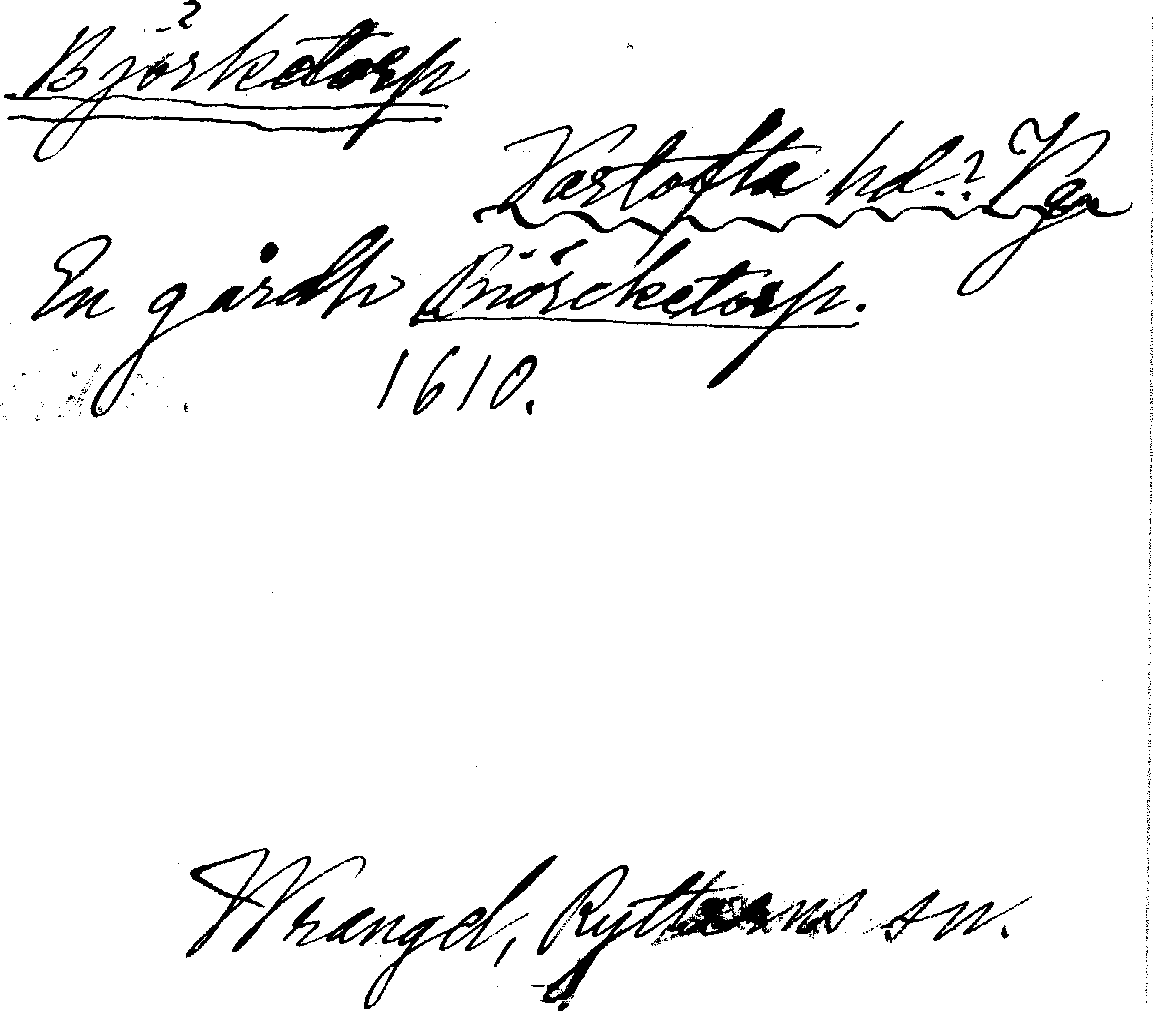 ?
Björketorp
Vartofta hd.? Vg
En gårdh Biörcketorp.
1610.
Wrangel, Rytterns sn.